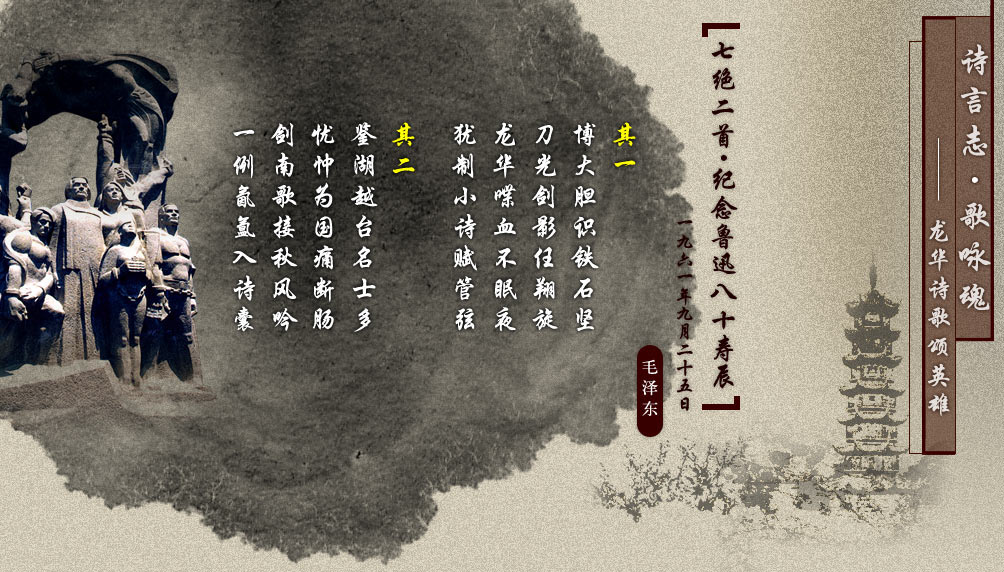 诗言志·歌咏魂
——龙华诗歌颂英雄
七绝二首·纪念鲁迅八十寿辰
一九六一年九月二十五日
毛泽东
其一
博大胆识铁石坚
刀光剑影任翔旋
龙华喋血不眠夜
犹制小诗赋管弦
其二
鉴湖越台名士多
忧忡为国痛断肠
剑南歌接秋风吟
一例氤氲入诗囊